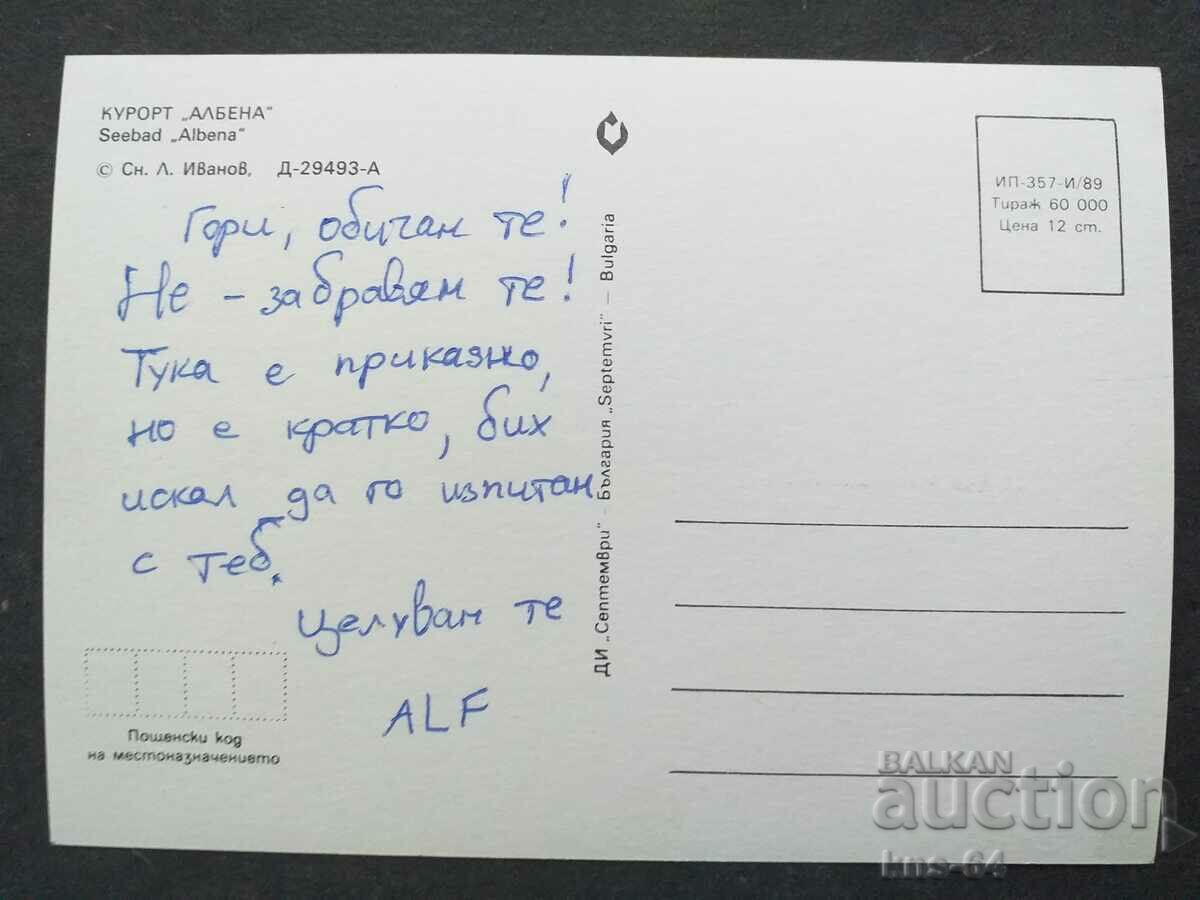 КУРОРТ „АЛБЕНА"
Seebad „Albena"
© Сн. Л. Иванов, Д-29493-А
Гори, обичан те!
Не - забравян те!
Тука е приказно,
но е кратко, бих
искал да го изпитан
с теб.
Целуван те
ALF
Пощенски код
на местоназначението
ДИ „Септември" - България „Septemvri" - Bulgaria
ИП-357-И/89
Тираж 60 000
Цена 12 ст.
BALKAN
auction
kms-64